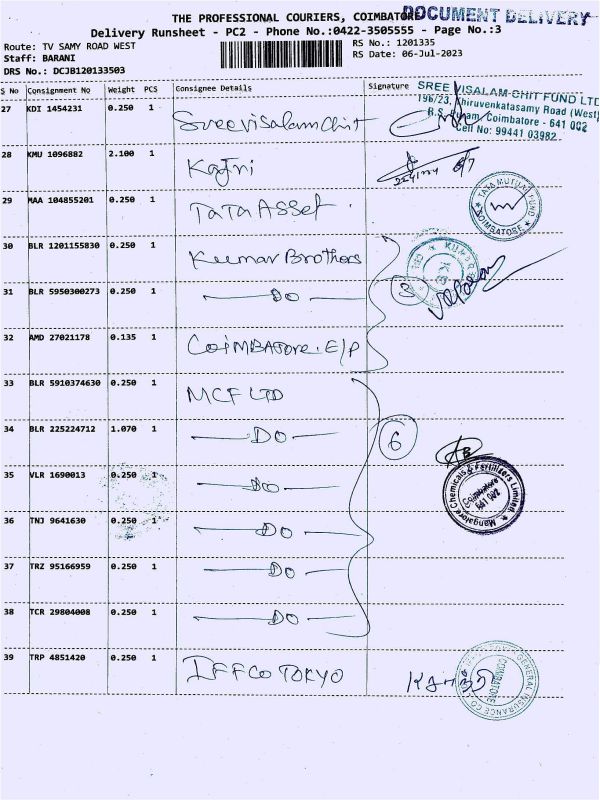 THE PROFESSIONAL COURIERS, COIMBATORE
DOCUMENT DELIVERY
Delivery Runsheet - PC2 - Phone No.:0422-3505555 - Page No.:3
Route: TV SAMY ROAD WEST
RS No.: 1201335
Staff: BARANI
RS Date: 06-Jul-2023
DRS No.: DCJB120133503
S No Consignment No Weight PCS Consignee Details Signature
SREE VISALAM CHIT FUND LTD
196/23, Thiruvenkatasamy Road (West)
R.S. Puram, Coimbatore - 641 002
Cell No: 99441 03982
27 KDI 1454231 0.250 1 Sreevisalam Chit
28 KMU 1096882 2.100 1
29 MAA 104855201 0.250 1 TATA Asset
TATA MUTUAL FUND
COIMBATORE
30 BLR 1201155830 0.250 1 Kumar Brothers
31 BLR 5950300273 0.250 1 DO
32 AMD 27021178 0.135 1 COIMBATORE. E/P
33 BLR 5910374630 0.250 1 MCF LTD
34 BLR 225224712 1.070 1 DO
6
35 VLR 1690013 0.250 1 DO
Mangalore Chemicals & Fertilizers Limited
Coimbatore
641 002
36 TNJ 9641630 0.250 1 DO
37 TRZ 95166959 0.250 1 DO
38 TCR 29804008 0.250 1 DO
39 TRP 4851420 0.250 1 IFFCO TOKYO
GENERAL INSURANCE CO
COIMBATORE